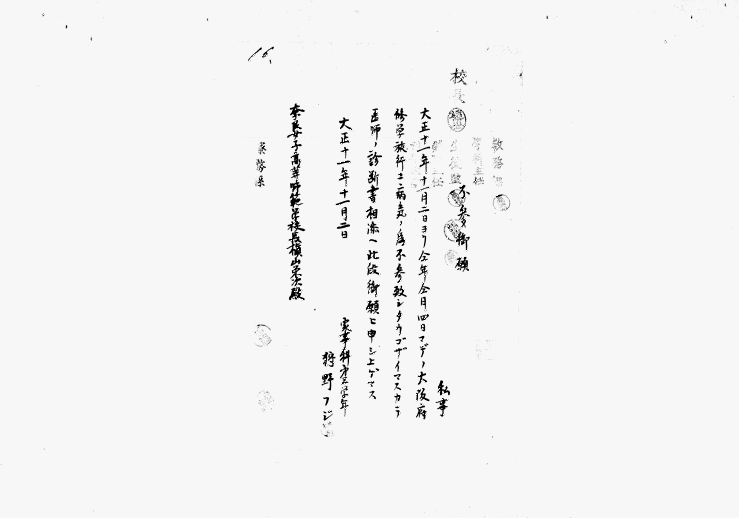 16,
校長
教務課
学科主任
不参御願
私事
大正十一年十一月二日ヨリ仝年仝月四日マデノ大阪府
修学旅行ニ病気ノ為不参致シタウゴザイマスカラ
医師ノ診断書相添ヘ此段御願ヒ申シ上ゲマス
大正十一年十一月二日
家事科第三学年
狩野フジ
奈良女子高等師範学校長槇山栄次殿